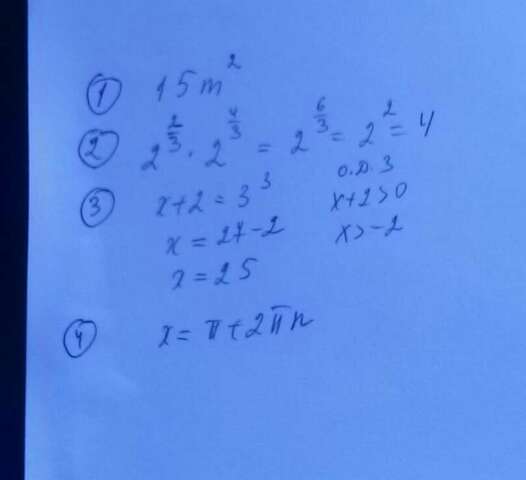 ① 15m²
② 2^(2/3) · 2^(4/3) = 2^(6/3) = 2² = 4
О.Д.З
③ x+2 = 3³ x+2>0
x = 27-2 x>-2
x = 25
④ x = π+2πn